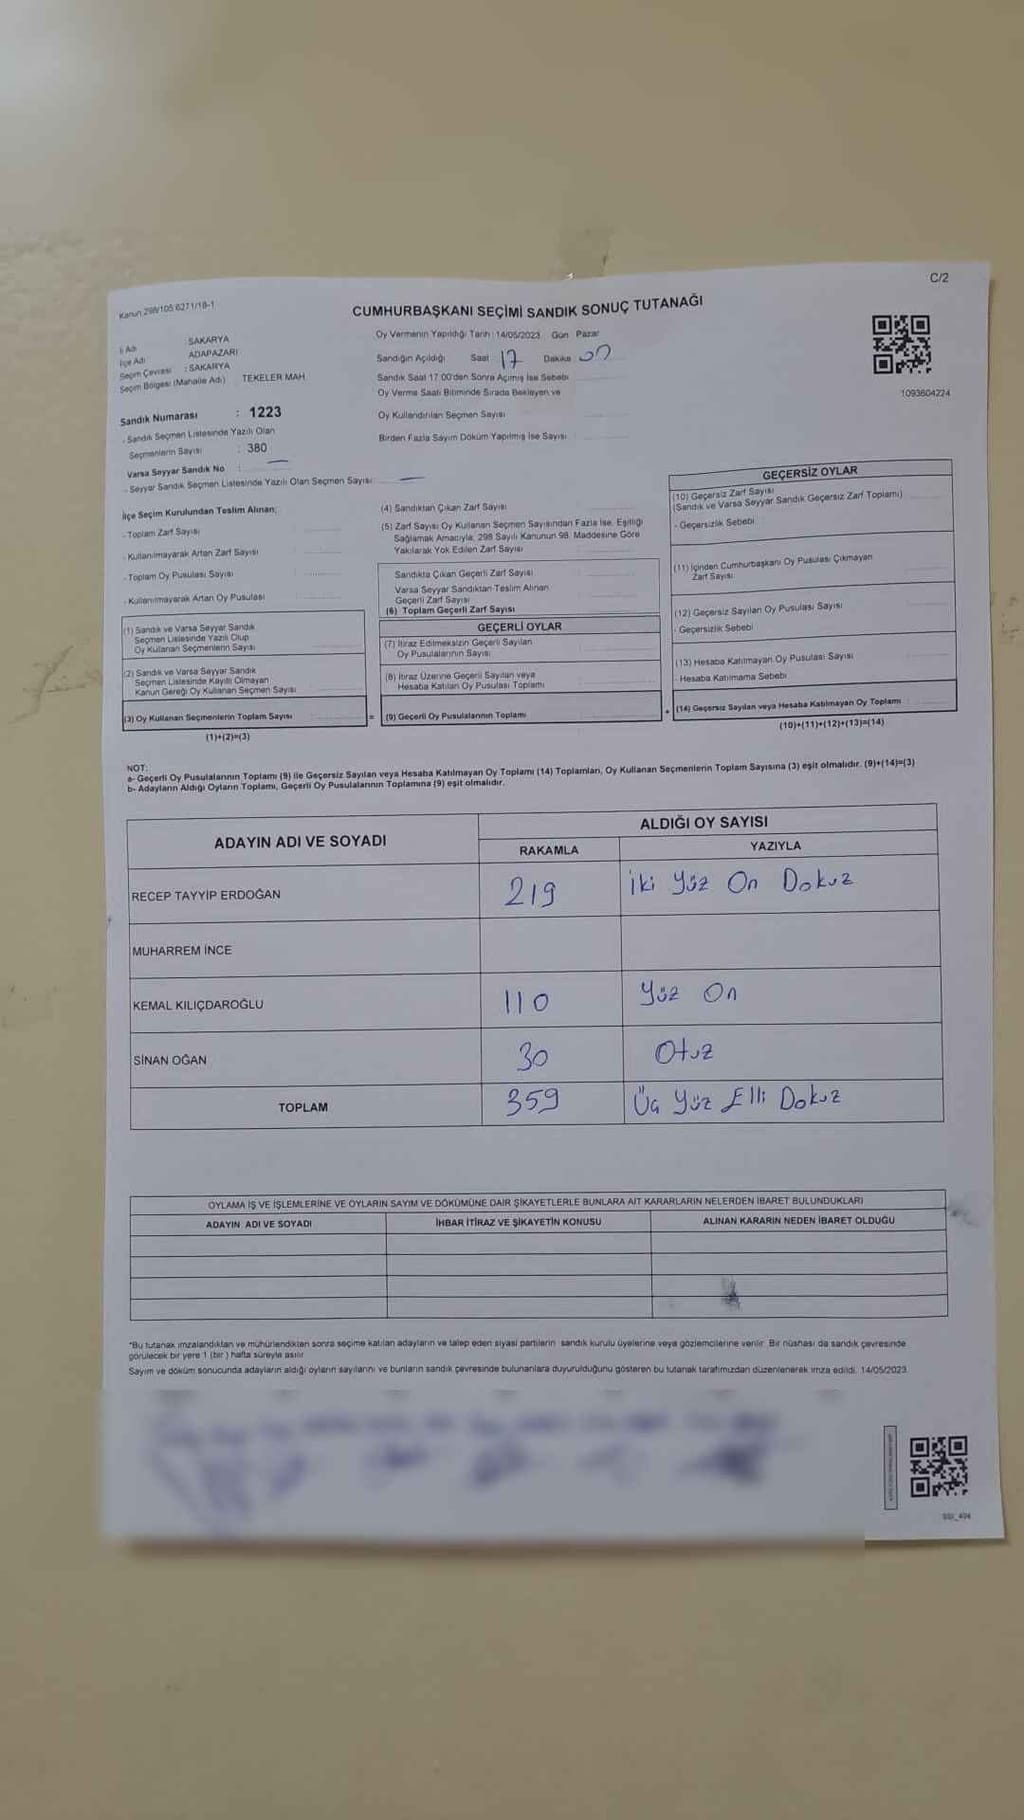 C/2
Kanun 298/105 6271/18-1
CUMHURBAŞKANI SEÇİMİ SANDIK SONUÇ TUTANAĞI
İl Adı : SAKARYA
İlçe Adı : ADAPAZARI
Seçim Çevresi : SAKARYA
Seçim Bölgesi (Mahalle Adı) TEKELER MAH.
Sandık Numarası : 1223
- Sandık Seçmen Listesinde Yazılı Olan
Seçmenlerin Sayısı : 380
Varsa Seyyar Sandık No :
- Seyyar Sandık Seçmen Listesinde Yazılı Olan Seçmen Sayısı:
Oy Vermenin Yapıldığı Tarih : 14/05/2023 Gün Pazar
Sandığın Açıldığı Saat 17 Dakika
Sandık Saat 17.00'den Sonra Açımış İse Sebebi
Oy Verme Saati Bitiminde Sırada Bekleyen ve
Oy Kullandırılan Seçmen Sayısı
Birden Fazla Sayım Döküm Yapılmış İse Sayısı
1093604224
İlçe Seçim Kurulundan Teslim Alınan;
- Toplam Zarf Sayısı
- Kullanılmayarak Artan Zarf Sayısı
- Toplam Oy Pusulası Sayısı
- Kullanılmayarak Artan Oy Pusulası
(1) Sandık ve Varsa Seyyar Sandık
Seçmen Listesinde Yazılı Olup
Oy Kullanan Seçmenlerin Sayısı
(2) Sandık ve Varsa Seyyar Sandık
Seçmen Listesinde Kayıtlı Olmayan
Kanun Gereği Oy Kullanan Seçmen Sayısı
(3) Oy Kullanan Seçmenlerin Toplam Sayısı
(1)+(2)=(3)
(4) Sandıktan Çıkan Zarf Sayısı
(5) Zarf Sayısı Oy Kullanan Seçmen Sayısından Fazla İse, Eşitliği
Sağlamak Amacıyla, 298 Sayılı Kanunun 98. Maddesine Göre
Yakılarak Yok Edilen Zarf Sayısı
Sandıkta Çıkan Geçerli Zarf Sayısı
Varsa Seyyar Sandıktan Teslim Alınan
Geçerli Zarf Sayısı
(6) Toplam Geçerli Zarf Sayısı
GEÇERLİ OYLAR
(7) İtiraz Edilmeksizin Geçerli Sayılan
Oy Pusulalarının Sayısı
(8) İtiraz Üzerine Geçerli Sayılan veya
Hesaba Katılan Oy Pusulası Toplamı
= (9) Geçerli Oy Pusulalarının Toplamı
GEÇERSİZ OYLAR
(10) Geçersiz Zarf Sayısı
(Sandık ve Varsa Seyyar Sandık Geçersiz Zarf Toplamı)
- Geçersizlik Sebebi
(11) İçinden Cumhurbaşkanı Oy Pusulası Çıkmayan
Zarf Sayısı
(12) Geçersiz Sayılan Oy Pusulası Sayısı
- Geçersizlik Sebebi
(13) Hesaba Katılmayan Oy Pusulası Sayısı
- Hesaba Katılmama Sebebi
+ (14) Geçersiz Sayılan veya Hesaba Katılmayan Oy Toplamı
(10)+(11)+(12)+(13)=(14)
NOT:
a- Geçerli Oy Pusulalarının Toplamı (9) ile Geçersiz Sayılan veya Hesaba Katılmayan Oy Toplamı (14) Toplamları, Oy Kullanan Seçmenlerin Toplam Sayısına (3) eşit olmalıdır. (9)+(14)=(3)
b- Adayların Aldığı Oyların Toplamı, Geçerli Oy Pusulalarının Toplamına (9) eşit olmalıdır.
ADAYIN ADI VE SOYADI
ALDIĞI OY SAYISI
RAKAMLA YAZIYLA
RECEP TAYYİP ERDOĞAN 219 İki Yüz On Dokuz
MUHARREM İNCE
KEMAL KILIÇDAROĞLU 110 Yüz On
SİNAN OĞAN 30 Otuz
TOPLAM 359 Üç Yüz Elli Dokuz
OYLAMA İŞ VE İŞLEMLERİNE VE OYLARIN SAYIM VE DÖKÜMÜNE DAİR ŞİKAYETLERLE BUNLARA AİT KARARLARIN NELERDEN İBARET BULUNDUKLARI
ADAYIN ADI VE SOYADI İHBAR İTİRAZ VE ŞİKAYETİN KONUSU ALINAN KARARIN NEDEN İBARET OLDUĞU
*Bu tutanak imzalandıktan ve mühürlendikten sonra seçime katılan adayların ve talep eden siyasi partilerin sandık kurulu üyelerine veya gözlemcilerine verilir. Bir nüshası da sandık çevresinde
görülecek bir yere 1 (bir ) hafta süreyle asılır.
Sayım ve döküm sonucunda adayların aldığı oyların sayılarını ve bunların sandık çevresinde bulunanlara duyurulduğunu gösteren bu tutanak tarafımızdan düzenlenerek imza edildi. 14/05/2023